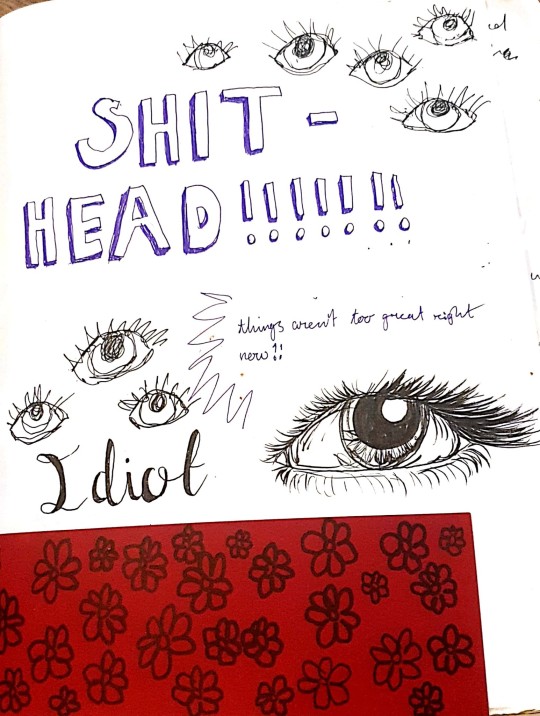 SHIT -
HEAD!!!!!!!
things aren't too great right
now!!
Idiot